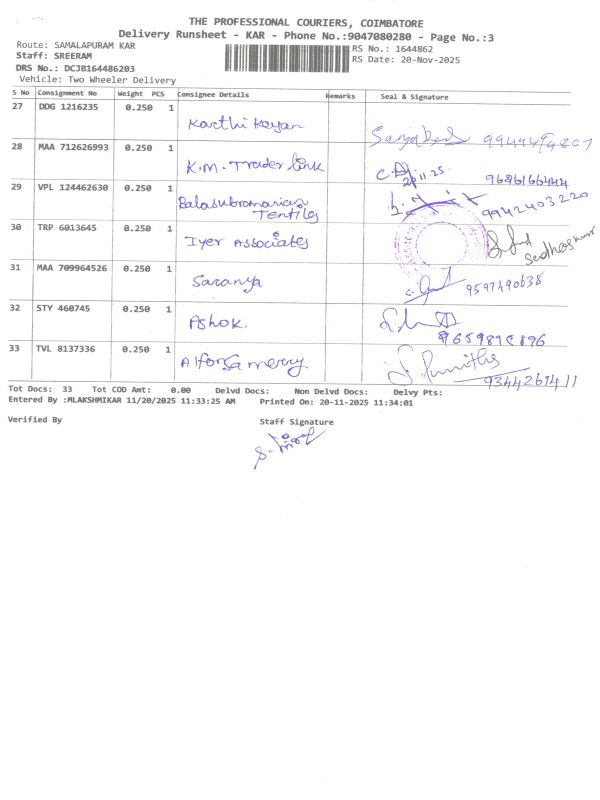 THE PROFESSIONAL COURIERS, COIMBATORE
Delivery Runsheet - KAR - Phone No.:9047080280 - Page No.:3
Route: SAMALAPURAM KAR RS No.: 1644862
Staff: SREERAM RS Date: 20-Nov-2025
DRS No.: DCJB164486203
Vehicle: Two Wheeler Delivery
S No Consignment No Weight PCS Consignee Details Remarks Seal & Signature
27 DDG 1216235 0.250 1
Karthi Keyan
28 MAA 712626993 0.250 1
K.M. Trader link
29 VPL 124462630 0.250 1
Balasubramanian
Textiles 9942403220
30 TRP 6013645 0.250 1
Iyer Associates
31 MAA 709964526 0.250 1
Saranya 9597490638
32 STY 460745 0.250 1
Ashok.
33 TVL 8137336 0.250 1
Tot Docs: 33 Tot COD Amt: 0.00 Delvd Docs: Non Delvd Docs: Delvy Pts:
Entered By :MLAKSHMIKAR 11/20/2025 11:33:25 AM Printed On: 20-11-2025 11:34:01
Verified By Staff Signature